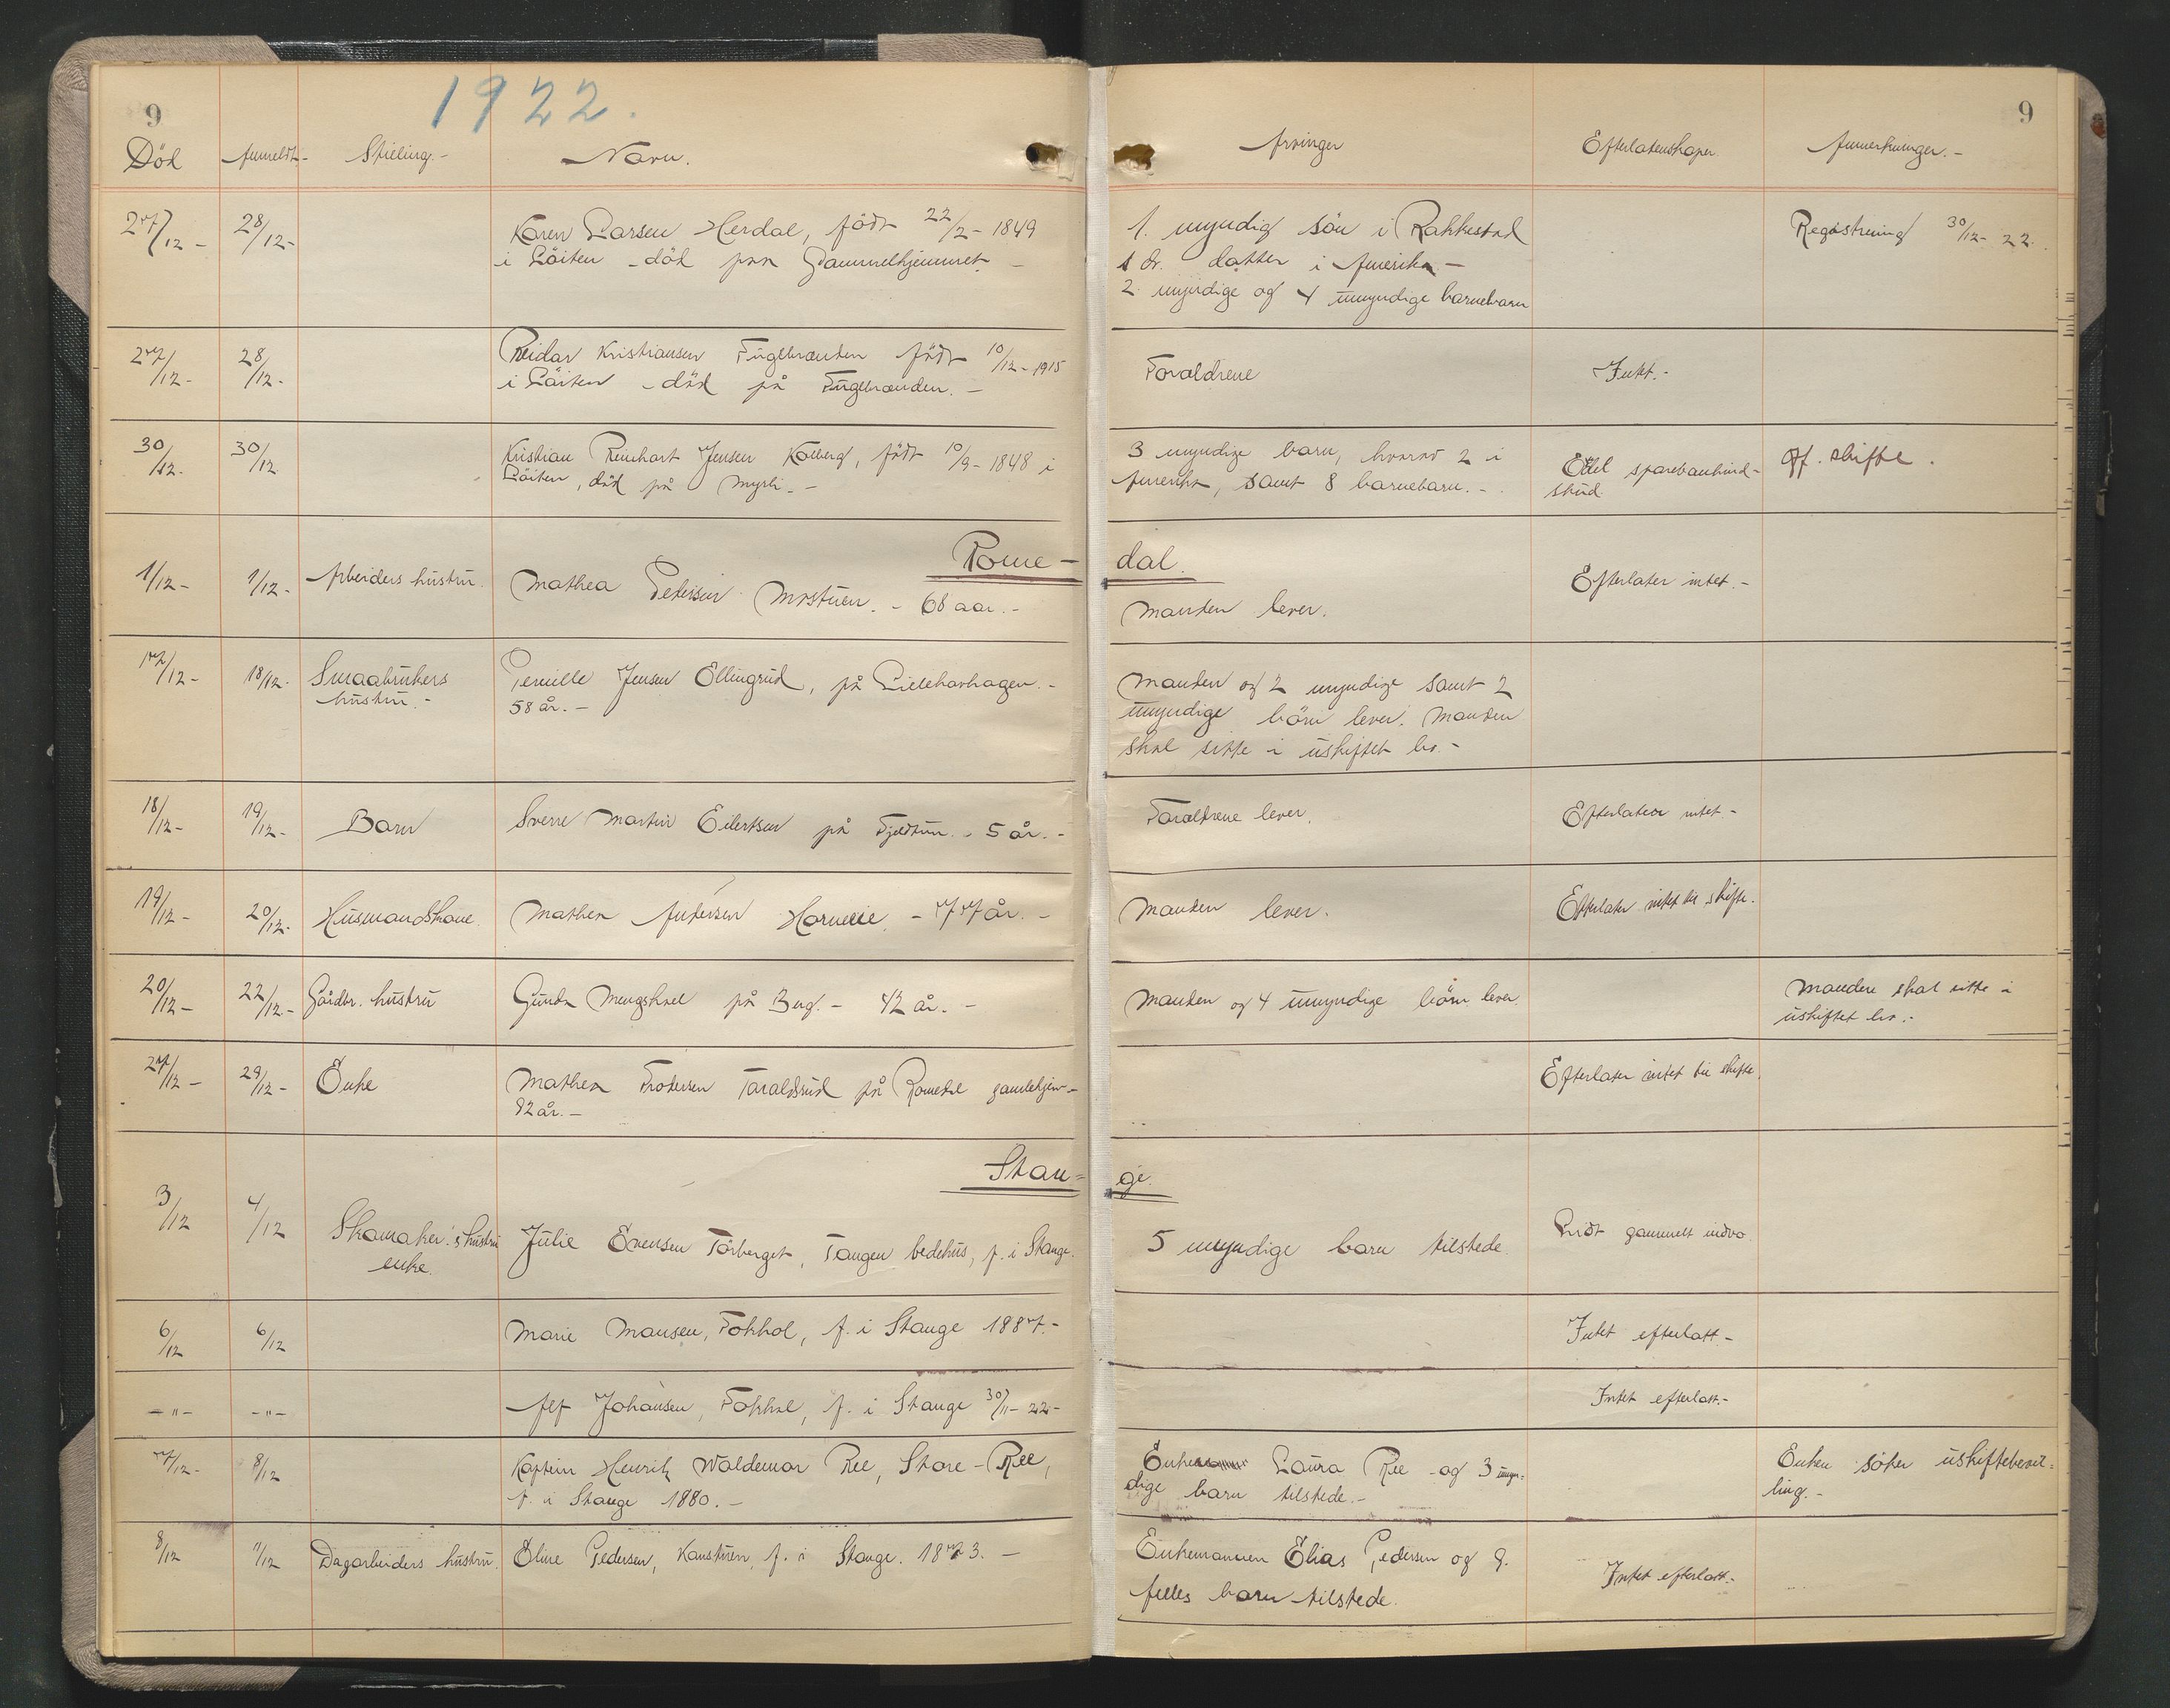 9
1922.
9
Död Anmeldt- Stilling.- Navn. Arvinger Efterlatenskaper. Anmerkninger.-
27/12- 28/12- Karen Larsen Herdal, födt 22/2- 1849 1. myndig sön i Rakkestad Registrering 30/12- 22.
i Löiten - död paa Gammelhjemmet - 1 do. datter i Amerika -
2 myndige og 4 umyndige barnebarn
27/12- 28/12- Reidar Kristiansen Fuglbranden födt 10/12- 1915 Foraldrene Intet.-
i Löiten - död på Fuglbranden. -
30/12- 30/12 Kristian Renhart Jensen Kolberg, födt 10/9- 1848 i 3 myndige barn, hvorav 2 i Endel sparebankind- Off. skifte.
Löiten, död på Myrli. - Amerika, samt 8 barnebarn. - skud.
Rome- dal.
1/12- 1/12- Arbeiders hustru. Mathea Pedersen Mostuen. - 68 aar. - Manden lever. Efterlater intet.-
17/12- 18/12- Smaabrukers Pernille Jensen Ellingsrud, på Lillehavhagen.- Manden og 2 myndige samt 2
hustru.- 58 år. - umyndige börn lever. Manden
skal sitte i uskiftet bo.-
18/12- 19/12- Barn Sverre Martin Eilertsen på Fjeldtun. - 5 år. - Foraldrene lever. Efterlater intet.-
19/12- 20/12- Husmandskone. Mathea Andersen Hornelie. - 77 år. - Manden lever. Efterlater intet til skifte.
20/12- 22/12- Gårdbr. hustru Gunda Mengshoel på Berg. - 42 år. - Manden og 4 umyndige börn lever. Mandene skal sitte i
uskiftet bo.-
27/12- 29/12- Enke Mathea Frodersen Taraldsrud på Romedal gamlehjem- Efterlater intet til skifte.
82 år. -
Stan- ge.
3/12 4/12 Skomaker's hustru Julie Evensen Torberget, Tangen bedehus, f. i Stange. 5 myndige barn tilstede. Lidt gammelt indbo
enke.
6/12 6/12 Marie Mansen, Fokhol, f. i Stange 1887.- Intet efterlatt -
-"- -"- Alf Johansen, Fokhol, f. i Stange 30/11- 22- Intet efterlatt.-
7/12- 8/12 Kaptein Henrik Waldemar Ree, Store-Ree, Enken Laura Ree og 3 umyn- Enken söker uskiftebevil-
f. i Stange 1880. - dige barn tilstede.- ling.-
8/12 11/12 Dagarbeiders hustru. Eline Pedersen, Kanstuen, f. i Stange. 1873. - Enkemannen Elias Pedersen og 9. Intet efterlatt.-
felles barn tilstede.